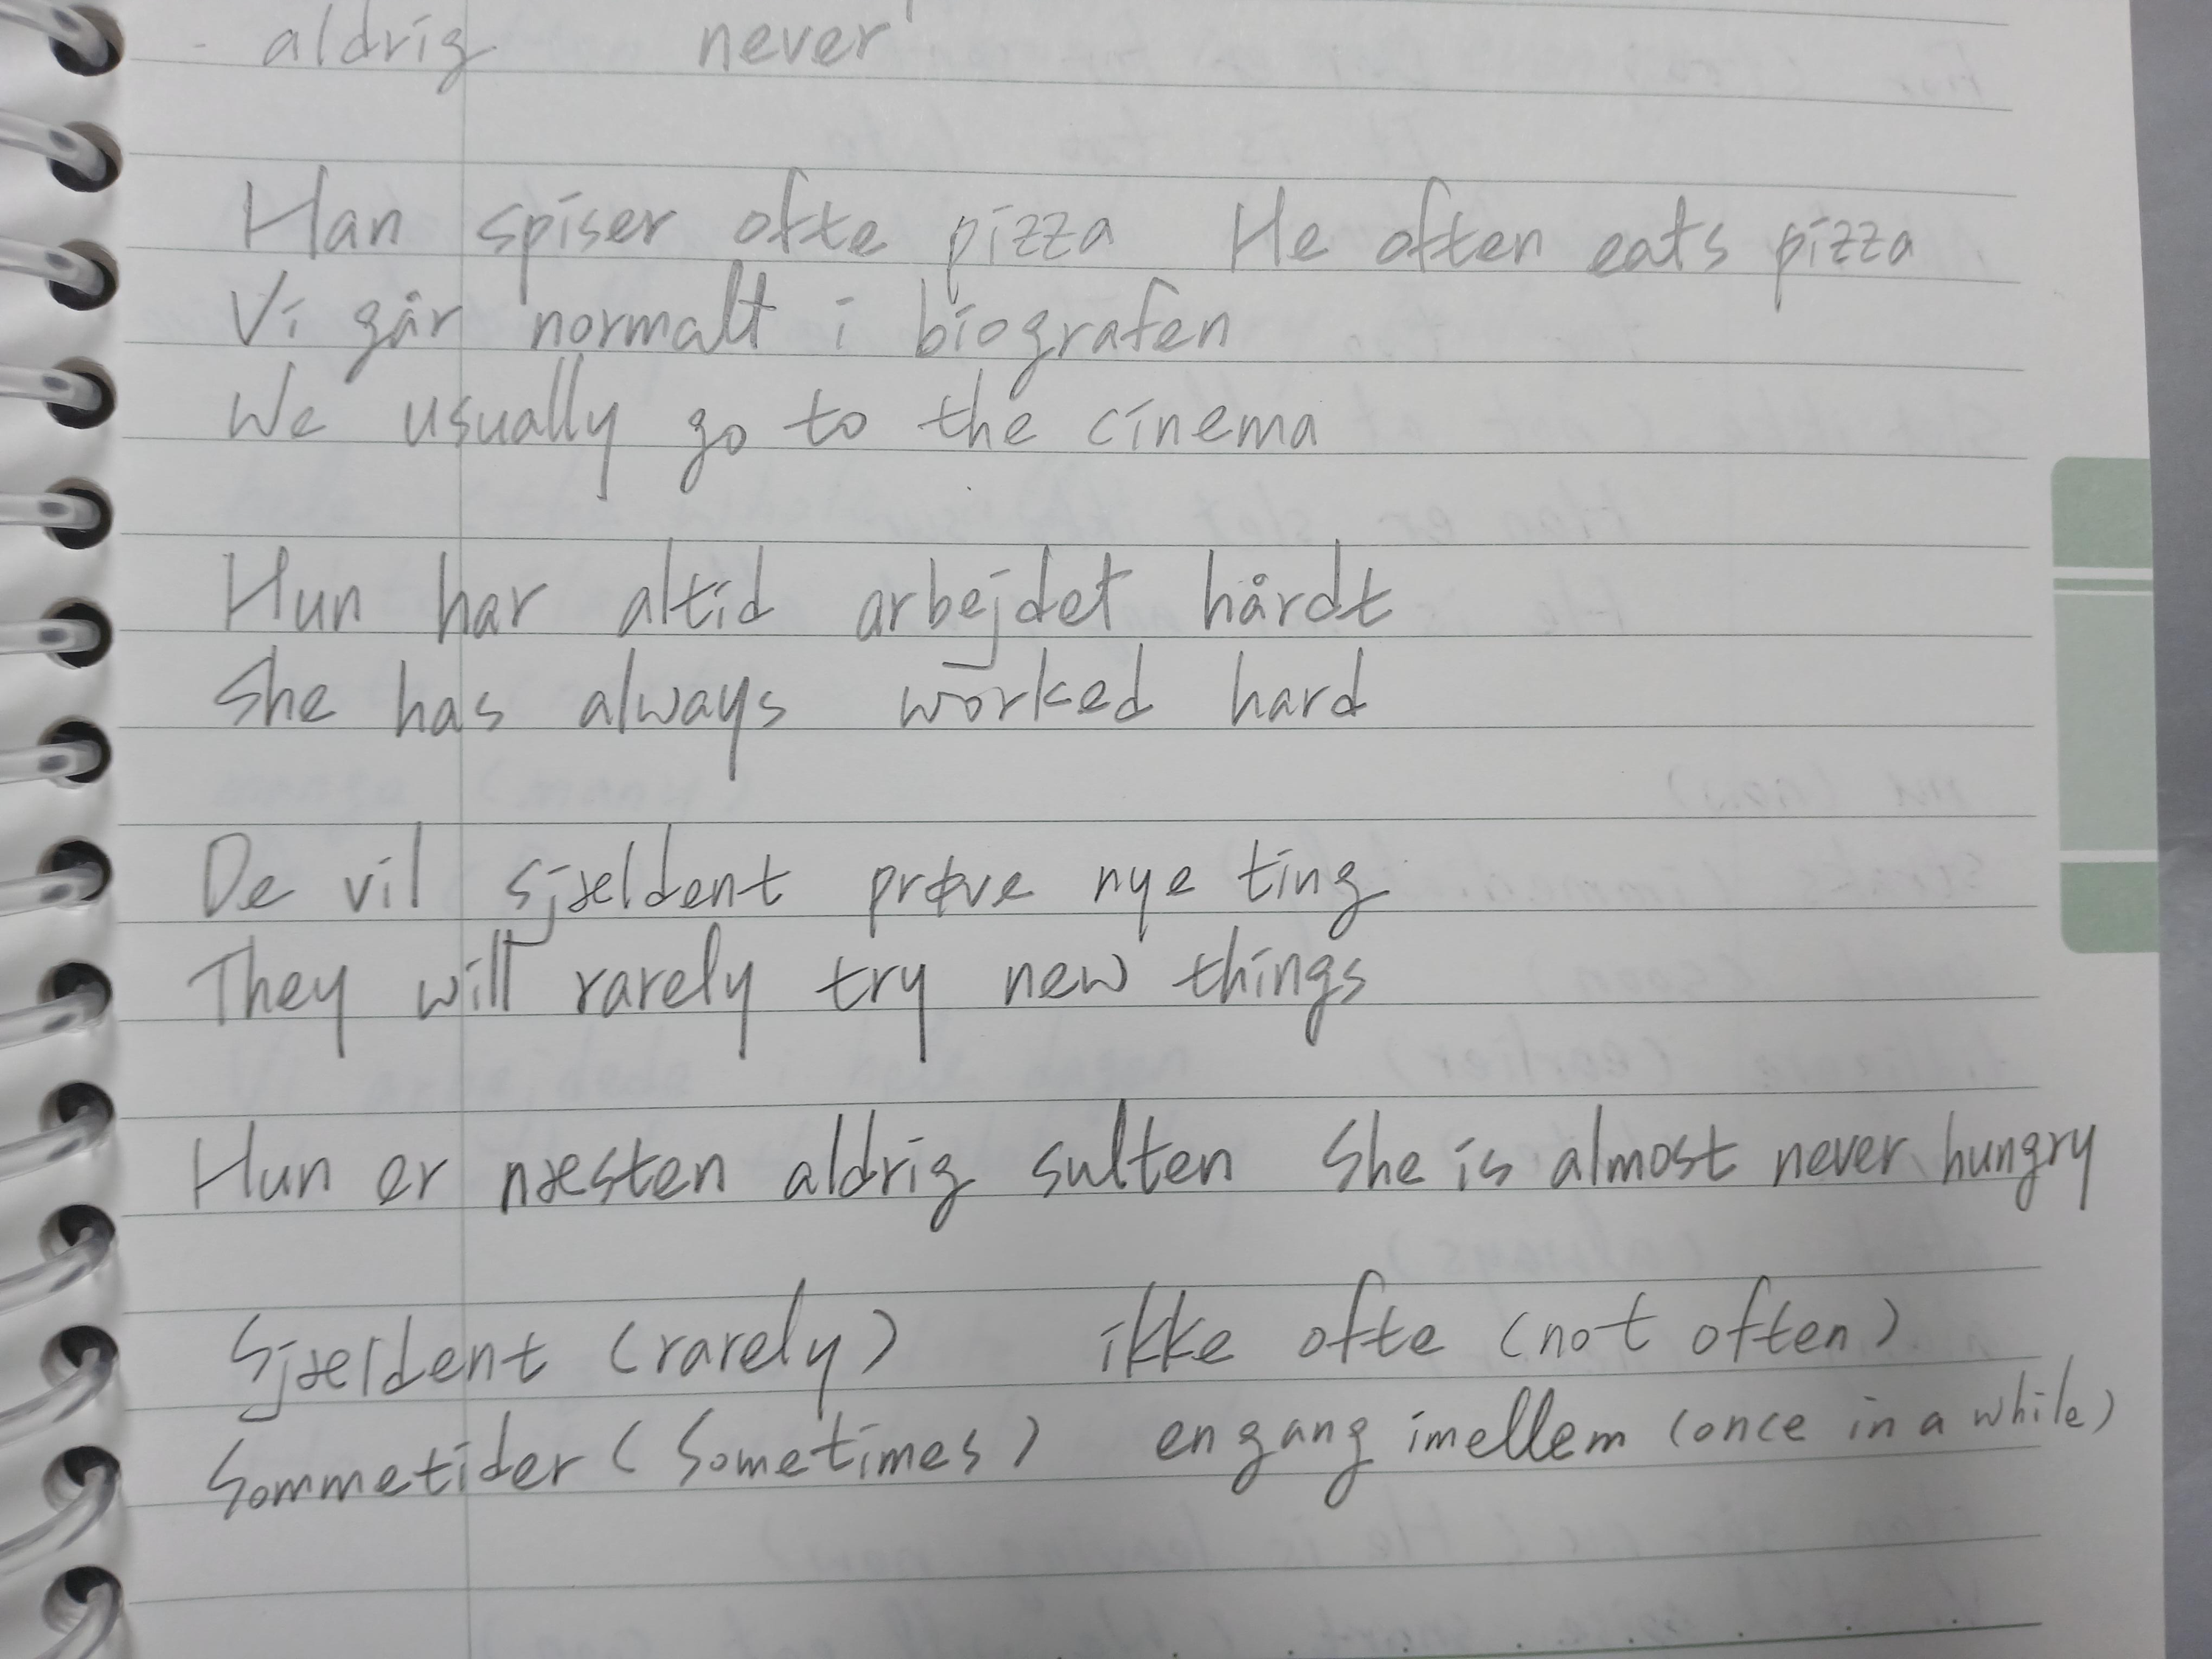 - aldrig never
Han spiser ofte pizza He often eats pizza
Vi går normalt i biografen
We usually go to the cinema
Hun har altid arbejdet hårdt
She has always worked hard
De vil sjældent prøve nye ting
They will rarely try new things
Hun er næsten aldrig sulten She is almost never hungry
Sjældent (rarely) ikke ofte (not often)
Sommetider (Sometimes) en gang imellem (once in a while)